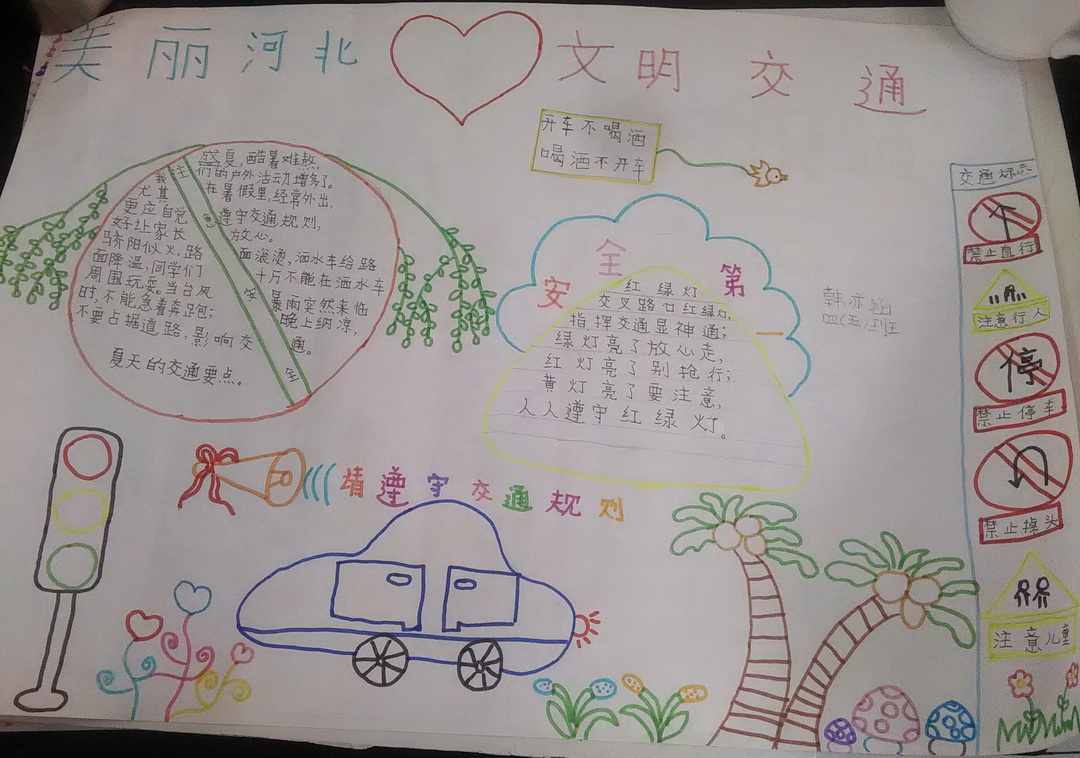 美丽河北 文明交通
开车不喝酒
喝酒不开车
注意安全
盛夏,酷暑难熬,
我们的户外活动增多了。
尤其在暑假里,经常外出,
更应自觉遵守交通规则,
好让家长放心。
骄阳似火,路面滚烫,洒水车给路
面降温,同学们千万不能在洒水车
周围玩耍。当台风暴雨突然来临
时,不能急着奔跑;晚上纳凉,
不要占据道路,影响交通。
夏天的交通要点。
安全第一
红绿灯
交叉路口红绿灯,
指挥交通显神通;
绿灯亮了放心走,
红灯亮了别抢行;
黄灯亮了要注意,
人人遵守红绿灯。
韩亦涵
四(五)班
请遵守交通规则
交通标志
禁止直行
注意行人
停
禁止停车
禁止掉头
注意儿童